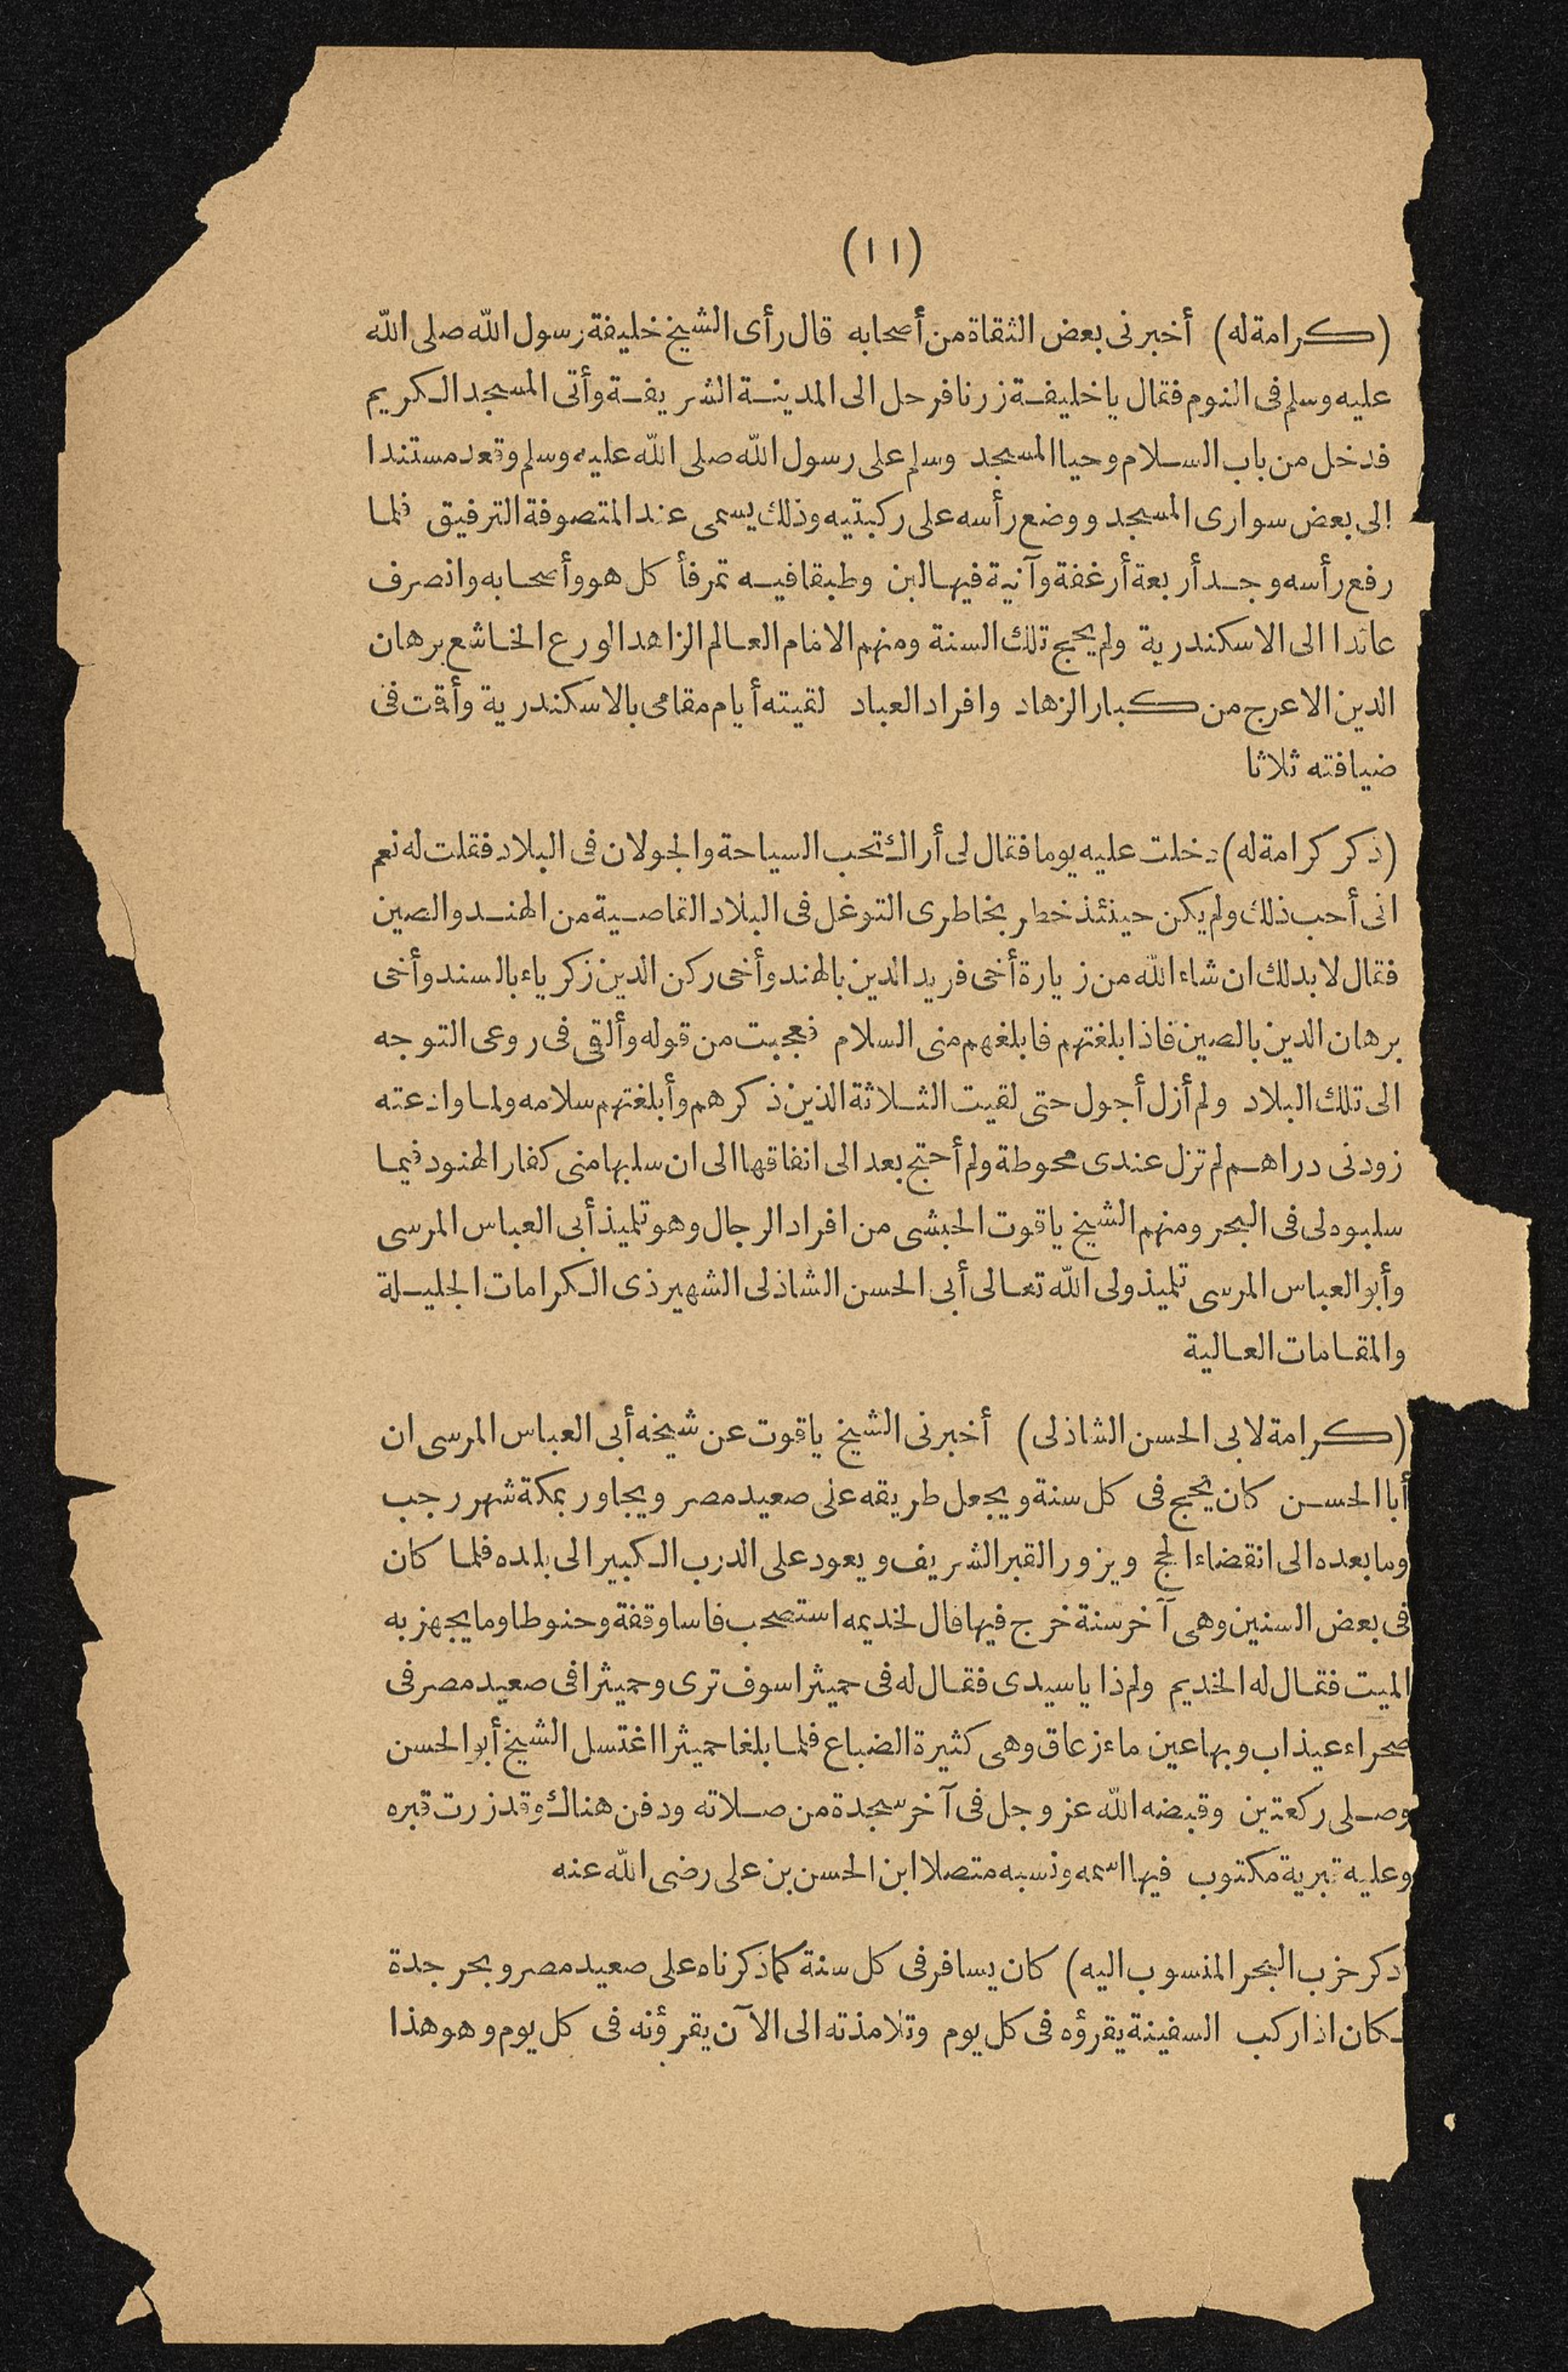 (١١)
(كرامة له) أخبرنى بعض الثقاة من أصحابه قال رأى الشيخ خليفة رسول الله صلى الله
عليه وسلم فى النوم فقال يا خليفة زرنا فرحل الى المدينة الشريفة وأتى المسجد الكريم
فدخل من باب السلام وحيا المسجد وسلم على رسول الله صلى الله عليه وسلم وقعد مستندا
الى بعض سوارى المسجد ووضع رأسه على ركبتيه وذلك يسمى عند المتصوفة الترفيق فلما
رفع رأسه وجد أربعة أرغفة وآنية فيها لبن وطبقا فيه تمر فأكل هو وأصحابه وانصرف
عائدا الى الاسكندرية ولم يحج تلك السنة ومنهم الامام العالم الزاهد الورع الخاشع برهان
الدين الاعرج من كبار الزهاد وافراد العباد لقيته أيام مقامى بالاسكندرية وأقمت فى
ضيافته ثلاثا
(ذكر كرامة له) دخلت عليه يوما فقال لى أراك تحب السياحة والجولان فى البلاد فقلت له نعم
انى أحب ذلك ولم يكن حينئذ خطر بخاطرى التوغل فى البلاد القاصية من الهند والصين
فقال لا بد لك ان شاء الله من زيارة أخى فريد الدين بالهند وأخى ركن الدين زكرياء بالسند وأخى
برهان الدين بالصين فاذا بلغتهم فابلغهم منى السلام فعجبت من قوله وألقى فى روعى التوجه
الى تلك البلاد ولم أزل أجول حتى لقيت الثلاثة الذين ذكرهم وأبلغتهم سلامه ولما وادعته
زودنى دراهم لم تزل عندى محوطة ولم أحتج بعد الى انفاقها الى ان سلبها منى كفار الهنود فيما
سلبوه لى فى البحر ومنهم الشيخ ياقوت الحبشى من افراد الرجال وهو تلميذ أبى العباس المرسى
وأبو العباس المرسى تلميذ ولى الله تعالى أبى الحسن الشاذلى الشهير ذى الكرامات الجليلة
والمقامات العالية
(كرامة لابى الحسن الشاذلى) أخبرنى الشيخ ياقوت عن شيخه أبى العباس المرسى ان
أبا الحسن كان يحج فى كل سنة ويجعل طريقه على صعيد مصر ويجاور بمكة شهر رجب
وما بعده الى انقضاء الحج ويزور القبر الشريف ويعود على الدرب الكبير الى بلده فلما كان
فى بعض السنين وهى آخر سنة خرج فيها قال لخديمه استصحب فاسا وقفة وحنوطا وما يجهز به
الميت فقال له الخديم ولم ذا يا سيدى فقال له فى حميثرا سوف ترى وحميثرا فى صعيد مصر فى
صحراء عيذاب وبها عين ماء زعاق وهى كثيرة الضباع فلما بلغا حميثرا اغتسل الشيخ أبو الحسن
وصلى ركعتين وقبضه الله عز وجل فى آخر سجدة من صلاته ودفن هناك وقد زرت قبره
وعليه تبرية مكتوب فيها اسمه ونسبه متصلا ابن الحسن بن على رضى الله عنه
ذكر حزب البحر المنسوب اليه) كان يسافر فى كل سنة كما ذكرناه على صعيد مصر وبحر جدة
ـكان اذا ركب السفينة يقرؤه فى كل يوم وتلامذته الى الآن يقرؤنه فى كل يوم وهو هذا